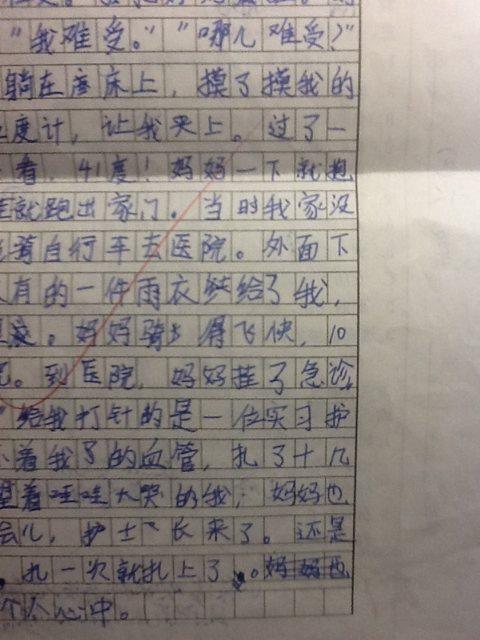 "我难受。""哪儿难受?"
躺在座床上，摸了摸我的
度计，让我夹上。过了一
看，41度！妈妈一下就抱
就跑出家门。当时我家没
着自行车去医院。外面下
有的一件雨衣给了我，
。妈妈骑得飞快，10
。到医院，妈妈挂了急诊，
给我打针的是一位实习护
着我了的血管，扎了十几
望着哇哇大哭的我，妈妈也
会儿，护士长来了。还是
，扎一次就扎上了。妈妈也
个人心中。